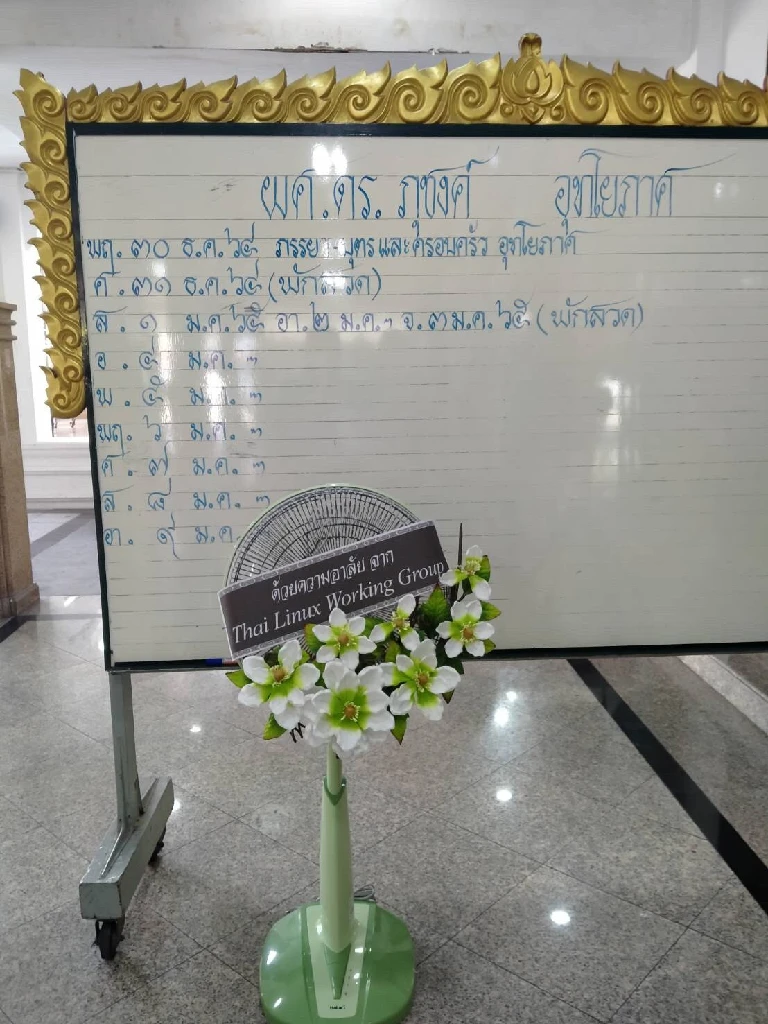 ผศ.ดร. ภุชงค์ อุทโยภาศ
พฤ. ๓๐ ธ.ค. ๖๔ ภรรยา-บุตรและครอบครัว อุทโยภาศ
ศ. ๓๑ ธ.ค. ๖๔ (พักสวด)
ส. ๑ ม.ค. ๖๕ อา. ๒ ม.ค. " จ. ๓ ม.ค. ๖๕ (พักสวด)
อ. ๔ ม.ค. "
พ. ๕ ม.ค. "
พฤ. ๖ ม.ค. "
ศ. ๗ ม.ค. "
ส. ๘ ม.ค. "
อา. ๙ ม.ค.
ด้วยความอาลัย จาก
Thai Linux Working Group